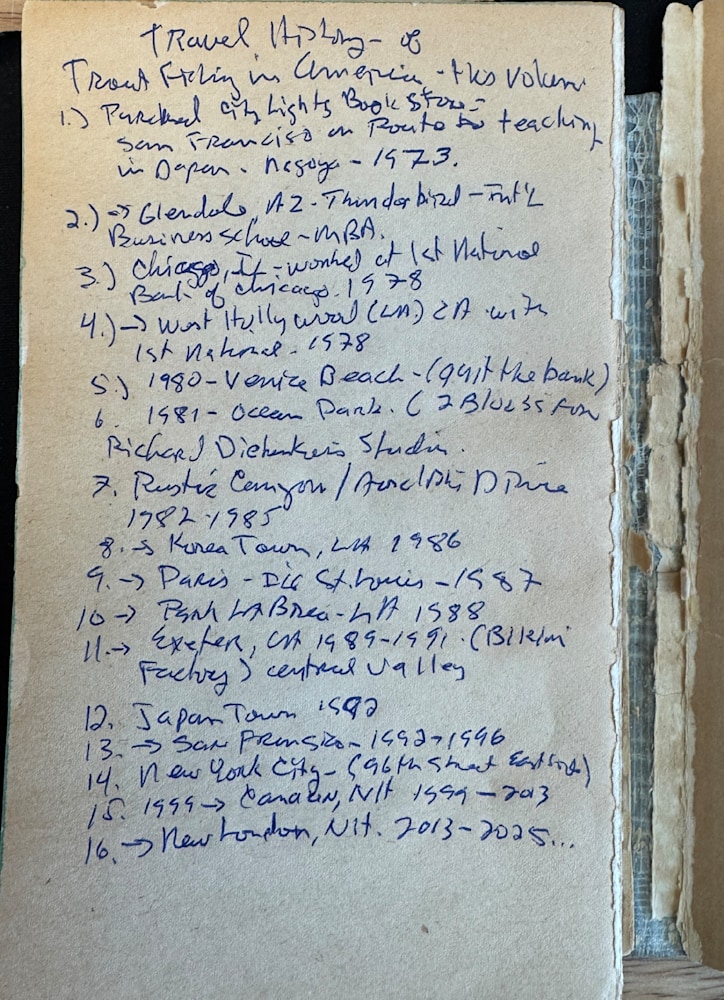 Travel History - of
Trout Fishing in America - this volume
1.) Purchased City Lights Book Store -
San Francisco en Route to teaching
in Japan. Nagoya - 1973.
2.) → Glendale AZ - Thunderbird - Int'l
Business School - MBA.
3.) Chicago, IL - worked at 1st National
Bank of Chicago. 1978
4.) → West Hollywood (LA) CA with
1st National - 1978
5.) 1980 - Venice Beach - (quit the bank)
6. 1981 - Ocean Park. (2 Blocks from
Richard Diebenkorn's Studio.
7. Rustic Canyon / Drive
1982-1985
8. → Korea Town, LA 1986
9. → Paris - Ile St. Louis - 1987
10 → Park La Brea - LA 1988
11. → Exeter, CA 1989-1991. (Bikini
Factory) central valley
12. Japan Town 1992
13. → San Fransisco - 1992-1996
14. New York City - (96th Street East Side)
15. 1999 → Canaan, NH 1999 - 2013
16. → New London, NH. 2013-2025...